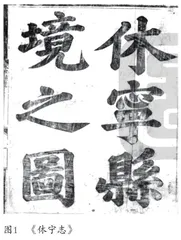 休寧縣
境之圖
图1 《休宁志》